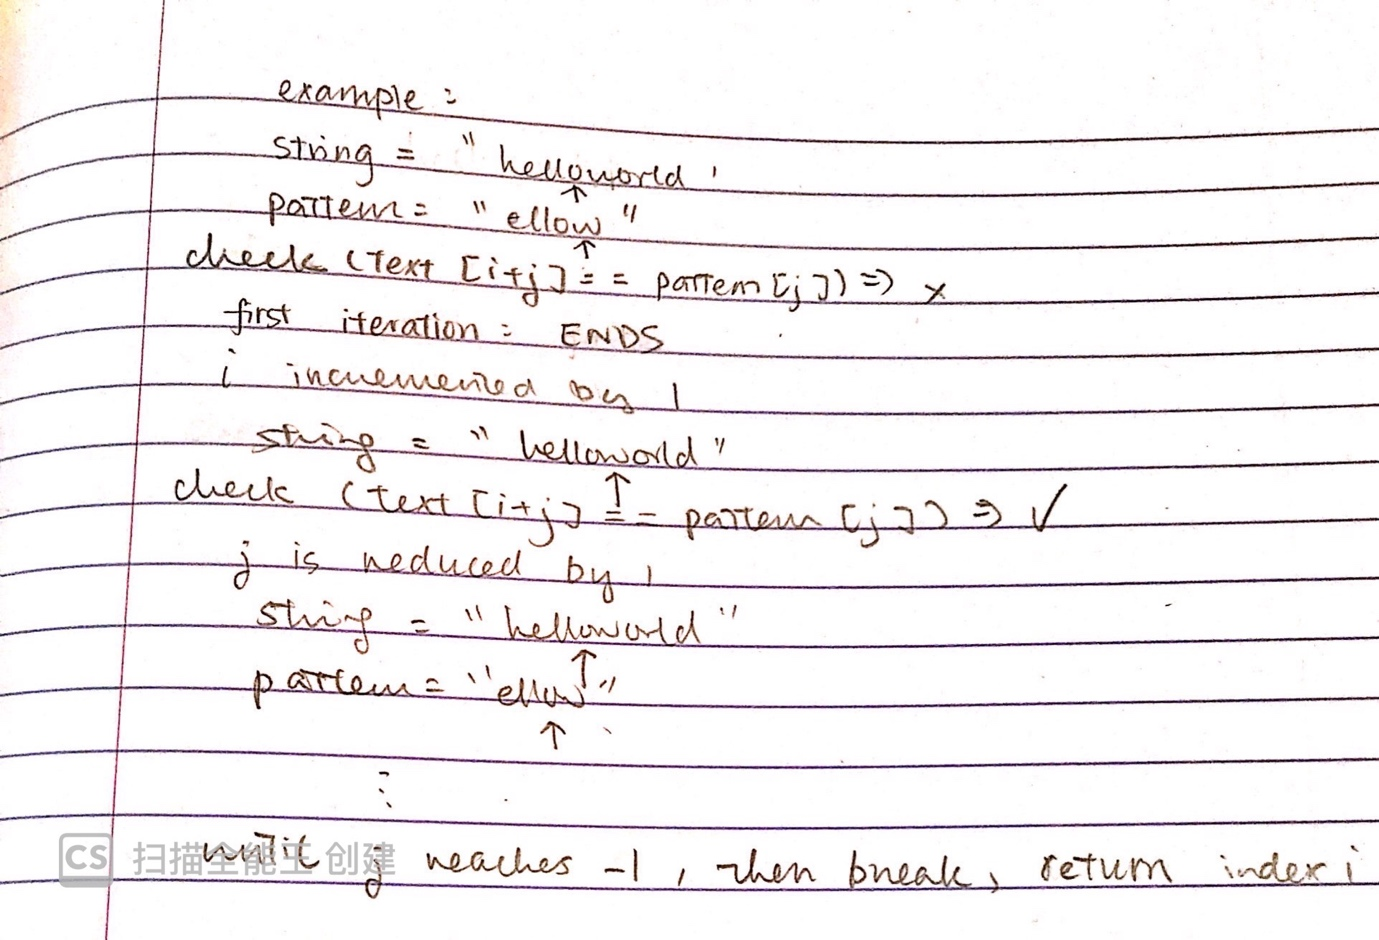 example :
string = " helloworld '
pattern = " ellow "
check (Text [i+j] == pattern [j]) => x
first iteration : ENDS
i incremented by 1
string = " helloworld "
check (text [i+j] == pattern [j]) => ✓
j is reduced by 1
string = " helloworld "
pattern = "ellow"
⋮
until j reaches -1, then break, return index i
CS 扫描全能王 创建